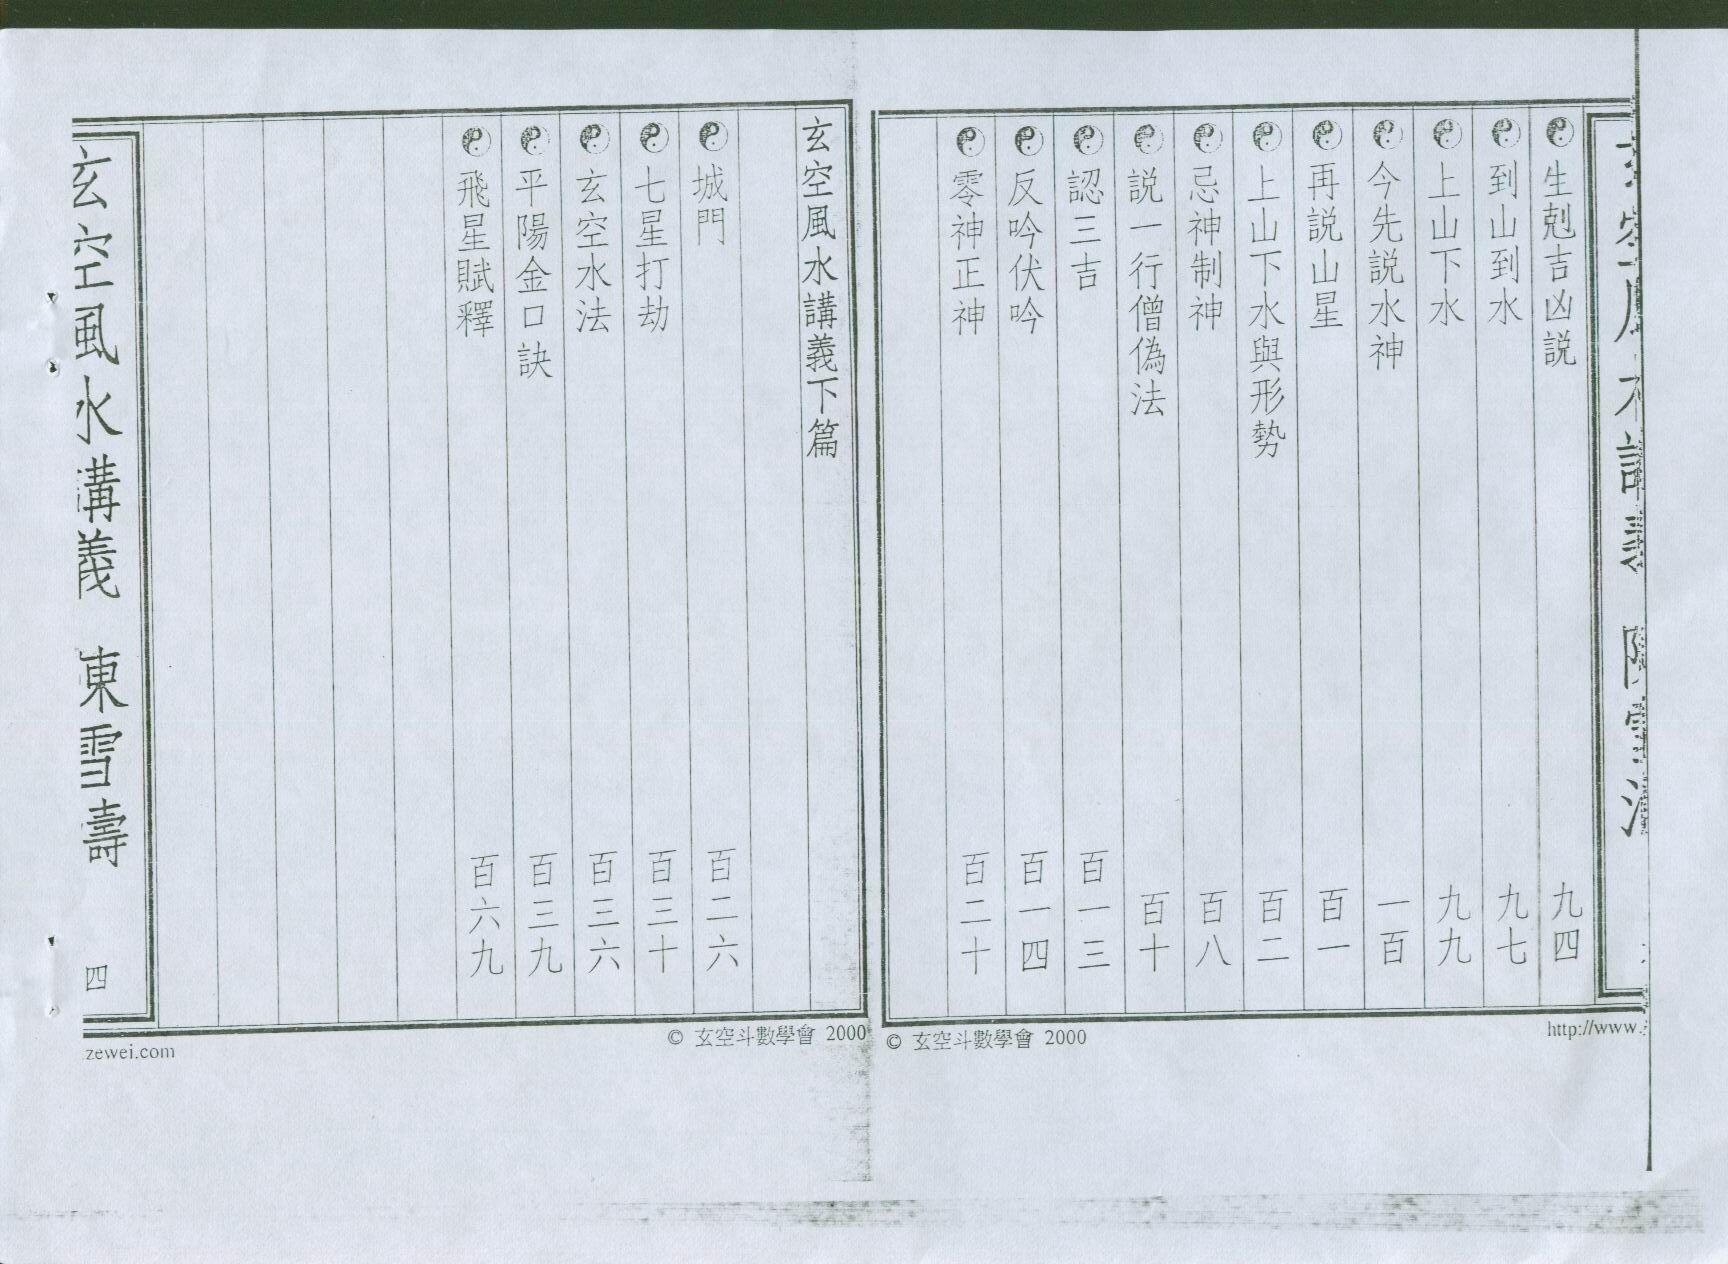 生剋吉凶説 九四
到山到水 九七
上山下水 九九
今先説水神 一百
再説山星 百一
上山下水與形勢 百二
忌神制神 百八
説一行僧偽法 百十
認三吉 百一三
反吟伏吟 百一四
零神正神 百二十
http://www.
© 玄空斗數學會 2000
玄空風水講義下篇
城門 百二六
七星打劫 百三十
玄空水法 百三六
平陽金口訣 百三九
飛星賦釋 百六九
玄空風水講義 東雪濤 四
© 玄空斗數學會 2000
zewei.com